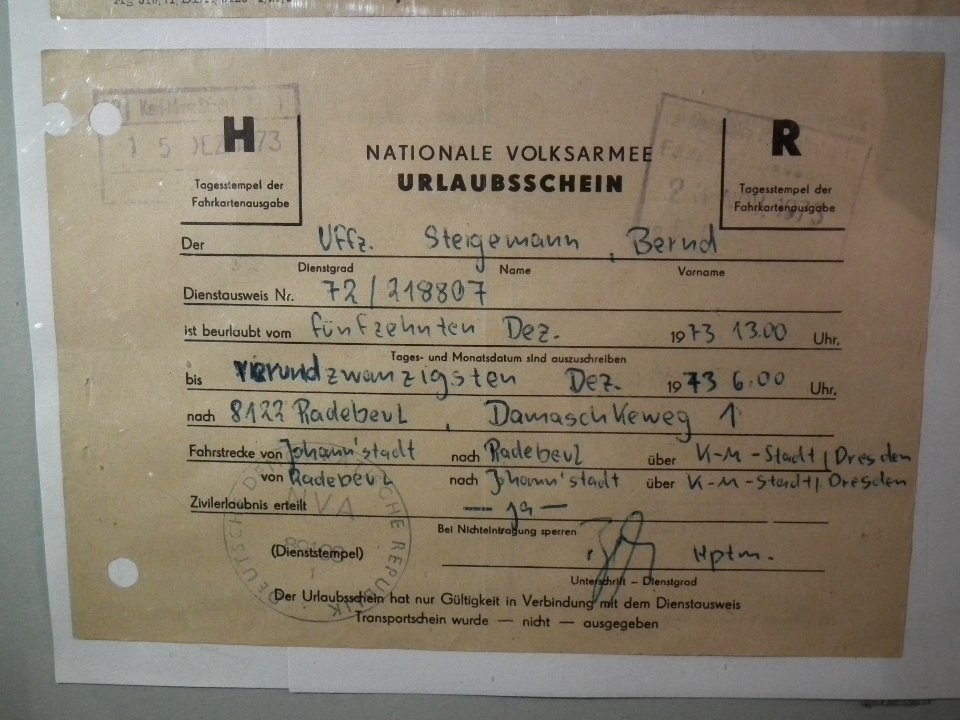 H
R
Tagesstempel der
Fahrkartenausgabe
NATIONALE VOLKSARMEE
URLAUBSSCHEIN
Tagesstempel der
Fahrkartenausgabe
Der Uffz. Steigemann, Bernd
Dienstgrad Name Vorname
Dienstausweis Nr. 72/218807
ist beurlaubt vom fünfzehnten Dez. 1973 13.00 Uhr,
Tages- und Monatsdatum sind auszuschreiben
bis vierundzwanzigsten Dez. 1973 6.00 Uhr,
nach 8122 Radebeul, Damaschkeweg 1
Fahrstrecke von Johann'stadt nach Radebeul über K-M-Stadt/Dresden
von Radebeul nach Johann'stadt über K-M-Stadt/Dresden
Zivilerlaubnis erteilt — ja —
Bei Nichteintragung sperren
(Dienststempel) Hptm.
Unterschrift – Dienstgrad
Der Urlaubsschein hat nur Gültigkeit in Verbindung mit dem Dienstausweis
Transportschein wurde — nicht — ausgegeben
15 DEZ 73
NVA
REPUBLIK